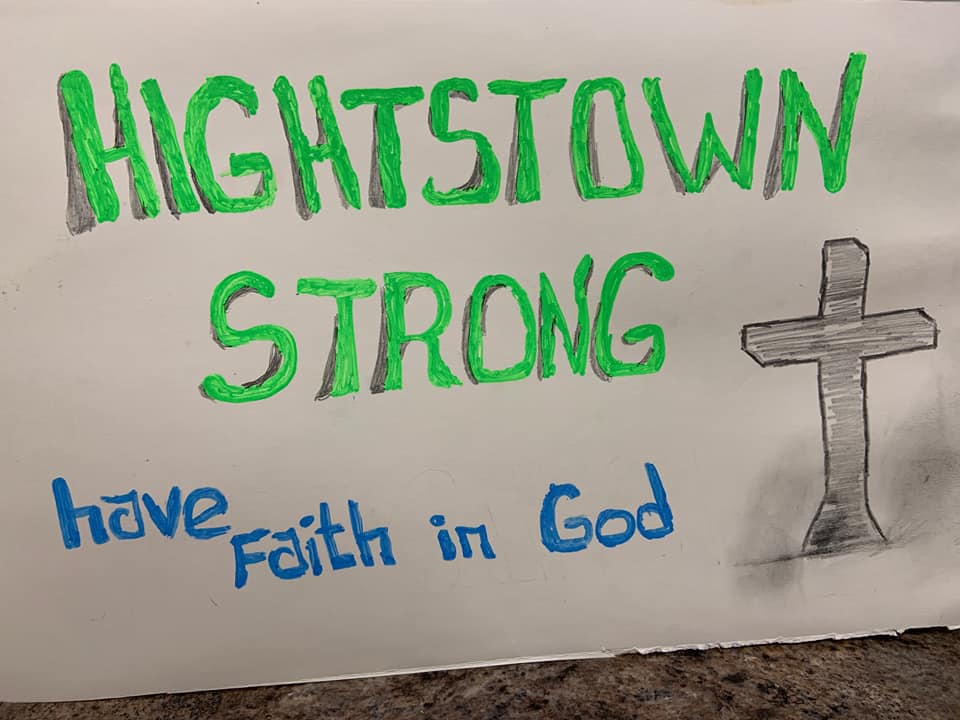 HIGHTSTOWN
STRONG
have Faith in God